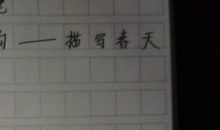 句——描写春天